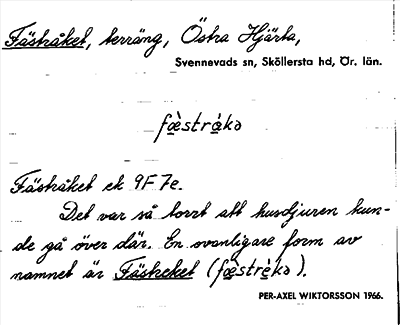 Fästråket, terräng, Östra Hjärta,
Svennevads sn, Sköllersta hd, Ör. län.
fæ̀strå̀kə
Fästråket ek 9F7e.
Det var så torrt att husdjuren kun-
de gå över där. En ovanligare form av
namnet är Fästreket (fæ̀strèkə).
PER-AXEL WIKTORSSON 1966.